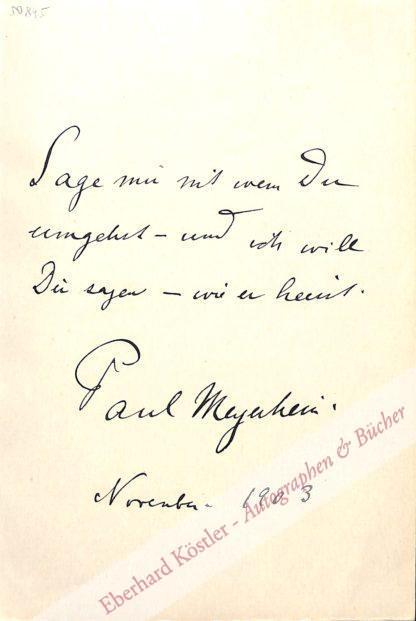 50845
Sage mir mit wem Du
umgehst – und ich will
Dir sagen – wie er heisst.
Paul Meyerheim.
November 1903
Eberhard Köstler - Autographen & Bücher